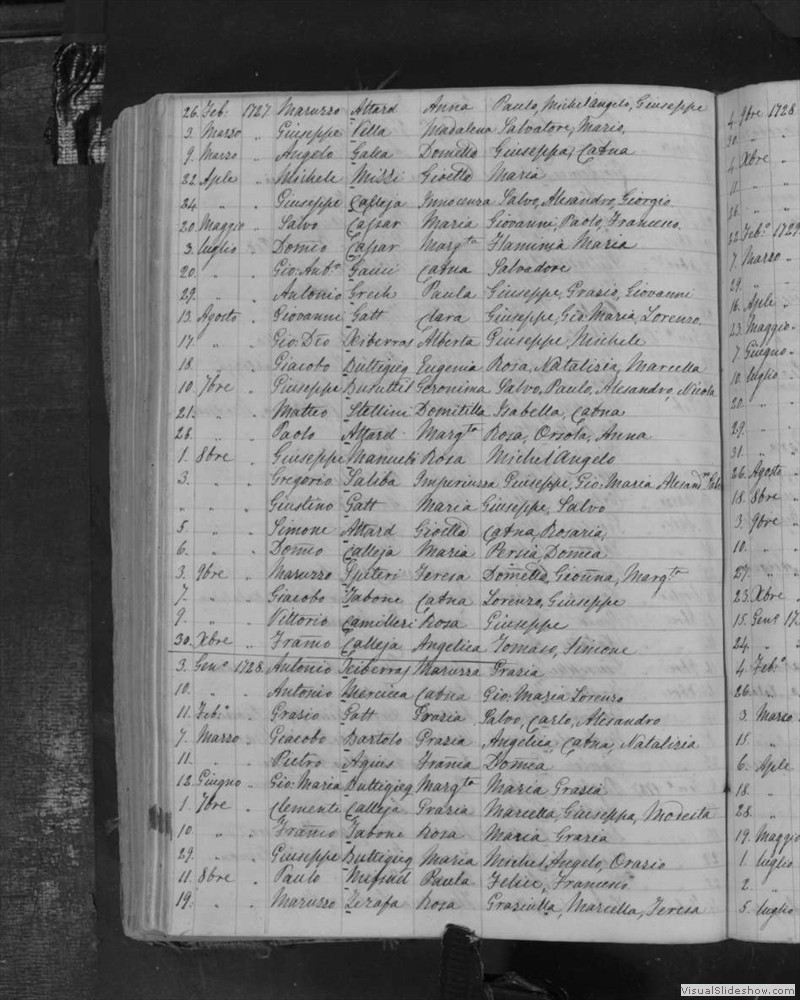 26. Feb: 1727 Maruzzo Attard Anna Paulo, Michel'angelo, Giuseppe
3. Marzo " Giuseppe Vella Madalena Salvatore, Mario,
9. Marzo " Angelo Galea Dometta Giuseppa, Catna
22 Aple " Michele Mizzi Gioetta Maria
24 " " Giuseppe Calleja Innocenza Salvo, Alesandro, Giorgio.
20 Maggio " Salvo Caspar Maria Giovanni, Paolo, Franceso.
3. luglio " Domco Caspar Margta Flaminia Maria
20. " " Gio: Anto Gauci Catna Salvadore
29. " " Antonio Grech Paula Giuseppe, Grazio, Giovanni
13. Agosto " Giovanni Gatt Clara Giuseppe, Gio Maria, Lorenzo.
17. " " Gio: Dto Xiberras Alberta Giuseppe, Michele
18. " " Giacobo Buttigieg Eugenia Rosa, Natalizia, Marcella
10. 7bre " Giuseppe Busuttil Geronima Salvo, Paulo, Alesandro, Nicola
21. " " Matteo Stellini Domitilla Isabella, Catna
26. " " Paolo Attard Margta Rosa, Orsola, Anna
1. 8bre " Giuseppe Manueli Rosa Michel Angelo
3. " " Gregorio Saliba Imperiuzza Giuseppe, Gio: Maria
" " " Giustino Gatt Maria Giuseppe, Salvo
5. " " Simone Attard Gioetta Catna, Rosaria,
6. " " Domco Calleja Maria Persia, Domca
3. 9bre " Maruzzo Spiteri Teresa Dometta, Gionna, Margta
7. " " Giacobo Tabone Catna Lorenzo, Giuseppe
9. " " Vittorio Camilleri Rosa Giuseppe
30. Xbre " Franco Calleja Angelica Tomaso, Simione
3. Geno 1728. Antonio Xiberras Maruzza Grazia
10. " " Antonio Mercieca Catna Gio: Maria Lorenzo
11. Febo " Grazio Gatt Grazia Salvo, Carlo, Alesandro
7. Marzo " Giacobo Bartolo Grazia Angelica, Catna, Natalizia
11. " " Pietro Agius Franca Domca
12. Giugno " Gio: Maria Buttigieg Margta Maria Grazia
1. 7bre " Clemente Calleja Grazia Marcella, Giuseppa, Modesta
10. " " Franco Tabone Rosa Maria Grazia
29. " " Giuseppe Buttigieg Maria Michel, Angelo, Orazio
11. 8bre " Paulo Mifsud Paula Felice, Franceso
19. " " Maruzzo Zerafa Rosa Graziulla, Marcella, Teresa
4. 9bre 1728
30. " "
4 Xbre "
11. " "
26. " "
22. Febo 1729
7. Marzo "
29. " "
16. Aple "
23. Maggio "
7 Giugno "
10. luglio "
20. "
29. "
31. "
26. Agosto "
18. 8bre "
3. 9bre "
10. "
27. "
23. Xbre
15. Geno 17
24. "
4 Febo
26. "
3. Marzo
15. "
6. Aple
18. "
28. "
19. Maggio
1. luglio
2. "
5. luglio
VisualSlideshow.com